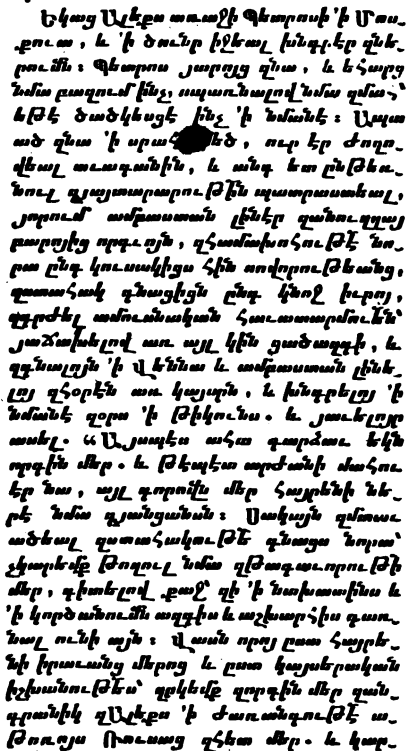 Եկաց Ալէքս առաջի Պետրոսի 'ի Մոս_
քուա, և 'ի ծունր իջեալ խնդրէր զնե_
րումն։ Պետրոս յարոյց զնա, և եհարց
նմա բազում ինչ, սպառնալով նմա զմահ՝
եթէ ծածկեսցէ ինչ 'ի նմանէ։ Ապա
ած զնա 'ի սրահ մեծ, ուր էր ժողո_
վեալ աւագանին, և անդ ետ ընթեռ_
նուլ զյայտարարութին պատրաստեալ,
յորում ամբաստան լինէր զանուղղայ
բարոյից որդւոյն, զհամախոհութէ նո_
րա ընդ կուսակիցս հին սովորութեանց,
զատահակ գնացիցն ընդ կնոջ իւրոյ,
զդրժել ամուսնական հաւատարմութեն՝
յաճախելով առ այլ կին ցածազգի, և
զգնալոյն 'ի Վեննա և ամբաստան լինե_
լոյ զհօրէն առ կայսրն, և խնդրելոյ 'ի
նմանէ զօրս 'ի թիկունս. և յաւելոյր
ասել. “Այսպէս ահա դարձաւ եկն
որդին մեր. և թէպէտ արժանի մահու
էր նա, այլ գորովն մեր հայրենի նե_
րէ նմա զյանցանսն։ Սակայն զմտաւ
ածեալ զատահակութէ գնացս նորա՝
չկարեմք թողուլ նմա զթագաւորութի
մեր, գիտելով քաջ զի 'ի նախատինս և
'ի կործանումն ազգիս և աշխարհիս դառ_
նալ ունի այն։ Վասն որոյ ըստ հայրե_
նի իրաւանց մերոց և ըստ կայսերական
իշխանութես՝ զրկեմք զորդին մեր զան_
դրանիկ զԱլէքս 'ի ժառանգութէ ա_
թոռոյս Ռուսաց զհետ մեր. և կար_